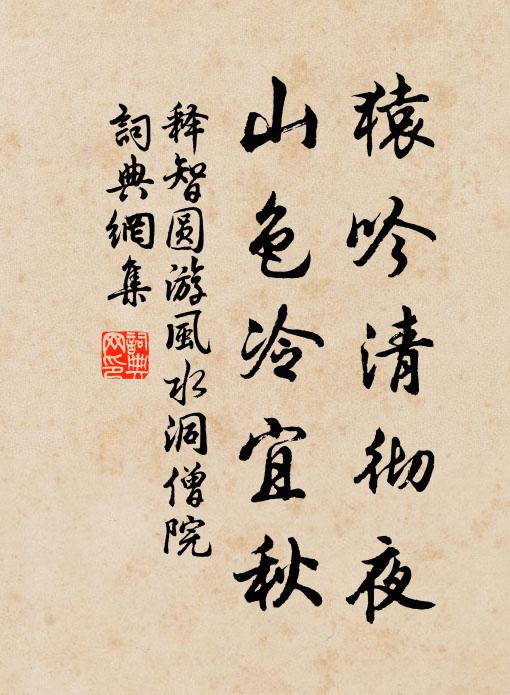 猿吟清彻夜
山色冷宜秋
释智圆游風水洞僧院
詞典網集
詞典网印